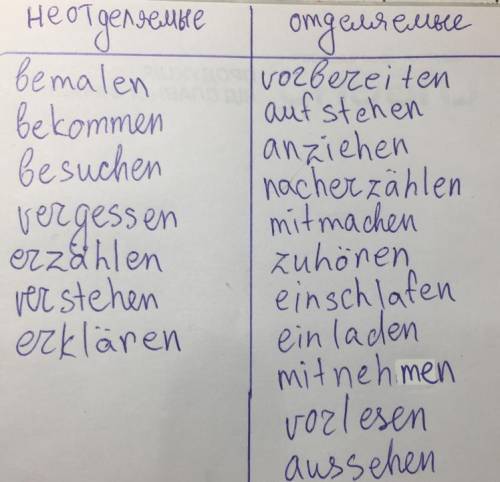 неотделяемые
bemalen
bekommen
besuchen
vergessen
erzählen
verstehen
erklären
отделяемые
vorbereiten
aufstehen
anziehen
nacherzählen
mitmachen
zuhören
einschlafen
einladen
mitnehmen
vorlesen
aussehen